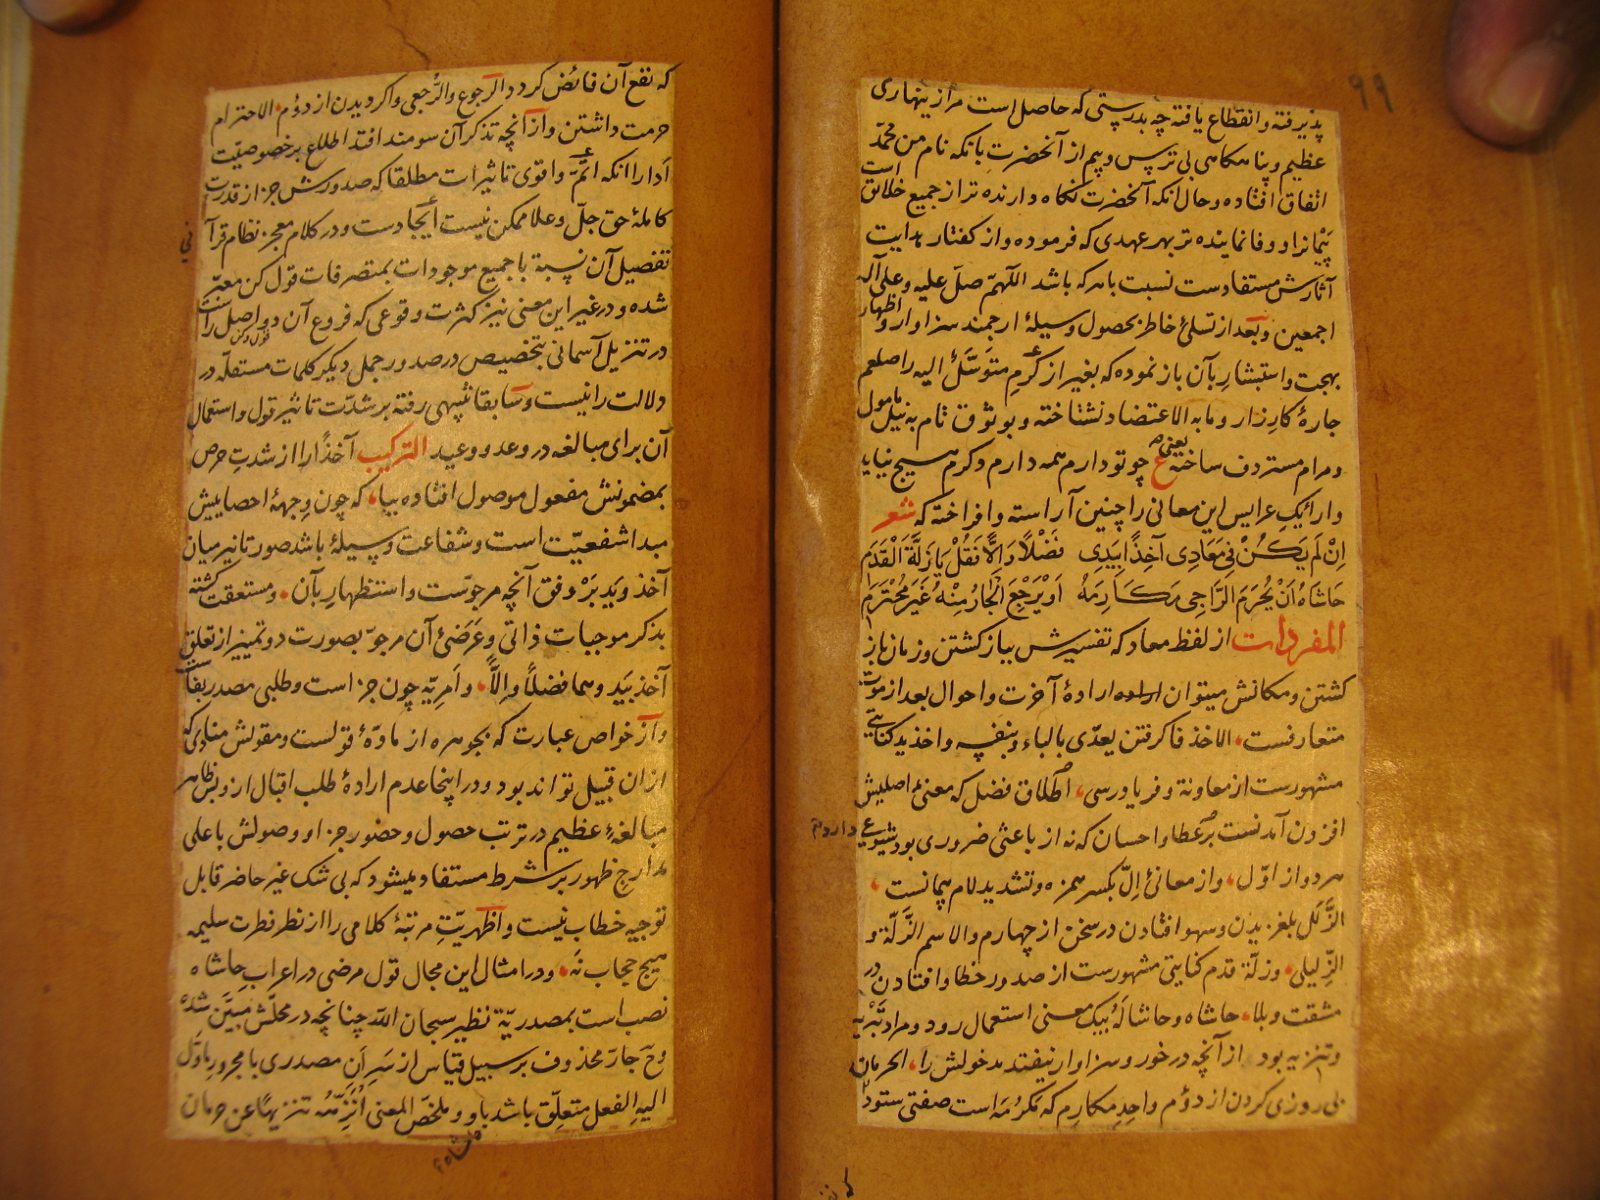 ۹۹
پذیرفته و انقطاع یافته چه بدرستی که حاصل است مرا زینهاری
عظیم و پناهگاهی بی ترس و بیم از آنحضرت بانکه نام من محمّد
اتفاق افتاده و حال آنکه آنحضرت نگاه دارنده تر از جمیع خلائق است
پیمانرا و وفا نماینده تر بهر عهدی که فرموده و از کفتار هدایت
آثارش مستفادست نسبت باهر که باشد اللّهمّ صلّ علیه و علی آله
اجمعین و بعد از تسلّی خاطر بحصول وسیلهٔ ارجمند سزاوار و اظهار
بهجت و استبشار بآن باز نموده که بغیر از کرمِ متوسَّل الیه را صلعم
چارهٔ کارزار و ما به الاعتضاد نشناخته و بوثوق تام به نیل مامول
و مرام مستردف ساخته یعنی ع چو تو دارم همه دارم دگرم هیچ نباید
و ارائکِ عرایس این معانی را چنین آراسته و افراخته که شعر
اِنْ لَم یَکُنْ فی مَعَادِی آخِذًا بِیَدِی فَضْلًا وَاِلَّا فَقُلْ یَا زَلَّةَ الْقَدَمِ
حَاشَاهُ اَنْ یُحْرَمَ الرَّاجِی مَکَارِمَهُ اَوْ یَرْجِعَ الْجَارُ مِنْهُ غَیْرَ مُحْتَرَمِ
المفردات از لفظ معاد که تفسیرش بباز کشتن و زمان باز
کشتن و مکانش میتوان ارادهٔ آخرت و احوال بعد از موت
متعارفست، الاخذ فاکرفتن یعدّی بالباء و بنفسه و اخذ ید کنایتی
مشهورست از معاونة و فریادرسی، اطلاق فضل که معنی اصلیش
افزون آمدنست بر عطا و احسان که نه از باعثی ضروری بود شیوعی دارد
هر دو از اوّل، و از معانی اِلّ بکسر همزه و تشدید لام پیمانست،
الزَّلَل بلغزیدن و سهو افتادن در سخن از چهارم و الاسم الزّلّة و
الزّلیلی، و زلّة قدم کنایتی مشهورست از صدور خطا و افتادن در
مشقت و بلا، حاشاه و حاشا لَهُ بیک معنی استعمال رود و مراد تبریه
و تنزیه بود از آنچه درخور و سزاوار نیفتد مدخولش را، الحرمان
بی روزی کردن از دوم و احدِ مکارم که مکرُمه است صفتی ستوده
که نفع آن فائض کردد و الرجوع و الرُّجعی واکردیدن از دوّم، الاحترام
حرمت داشتن و از آنچه تذکر آن سومند افتد اطلاع بر خصوصیّت
اَدا را آنکه اتمّ و اقوی تاثیرات مطلقا که صدورش جز از قدرت
کاملهٔ حق جلّ و علا ممکن نیست ایجادست و در کلام معجز نظام قرآنی
تفصیل آن نسبة با جمیع موجودات بمتصرفات قول کن معبّر
شده و در غیر این معنی نیز کثرت وقوعی که فروع آن دو اصل راست
قول و کن
در تنزیل آسمانی بتخصیص در صدور جمل دیکر کلمات مستقلّه در
دلالت را نیست و سابقا تنبیهی رفته بر شدّت تاثیر قول و استعمال
آن برای مبالغه در وعد و وعید الترکیب آخذًا را از شدتِ حرص
بمضمونش مفعول موصول افتاده ببا، که چون وجههٔ احصابیش
مبدا شفعیّت است و شفاعت وسیلهٔ باشد صور تاثیر میان
آخذ و ید بَرْ وفق آنچه مرجوّست و استظهار بآن، و مستعقب کشته
بذکر موجبات ذاتی و عَرَضی آن مرجوّ بصورت دو تمییز از تعلق
آخذ بیَد و هما فضلًا و اِلًّا، و اَمریّه چون جزاست و طلبی مصدر بفاست
و از خواص عبارت که بجوهره از مادّهٔ قولست و مقولش منادی که
از ان قبیل تواند بود و در اینجا عدم ارادهٔ طلب اقبال از و بس ظاهر
مبالغهٔ عظیم در ترتب حصول و حضور جزا و وصولش باعلی
مدارج ظهور بر شرط مستفاد میشود که بی شک غیر حاضر قابل
توجیه خطاب نیست و اظهریّتِ مرتبهٔ کلامی را از نظر فطرت سلیمه
هیچ حجاب نَه، و در امثال این مجال قول مرضی در اعرابِ حاشاه
نصب است بمصدریّة نظیر سبحان الله چنانچه در محلّش مبیّن شده
و حَ جارّ محذوف بر سبیل قیاس از سَرِ اَن مصدری با مجرورِ باوّل
الیهِ الفعل متعلّق باشد باو و ملخّص المعنی اُنَزِّهُه تنزیهًا عن حرمان